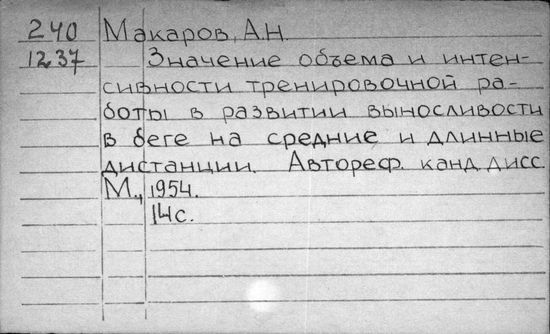 240 Макаров, А.Н.
1237 Значение объема и интен-
сивности тренировочной ра-
боты в развитии выносливости
в беге на средние и длинные
дистанции. Автореф. канд. дисс.
М., 1954.
14с.